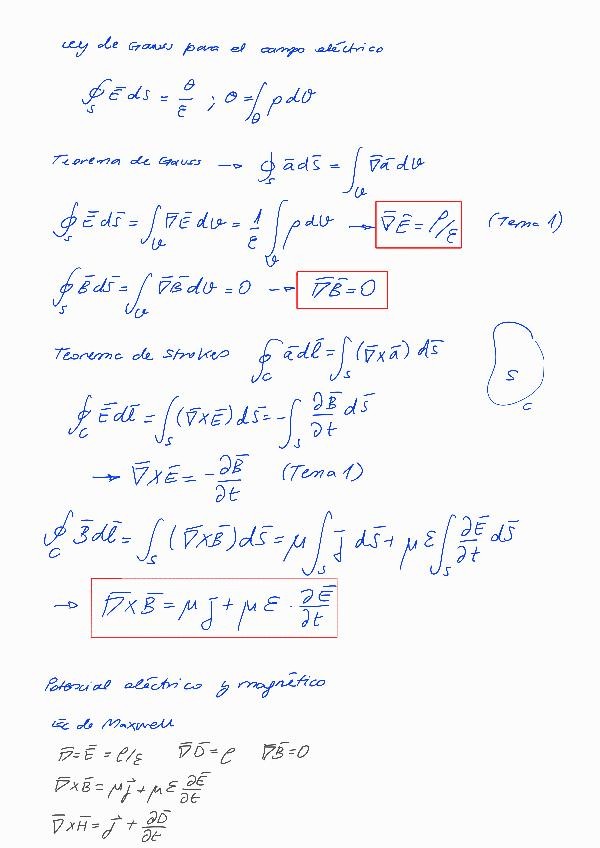 Ley de Gauss para el campo eléctrico
∮_S Ē ds = θ/ε ; θ = ∫_θ ρ dϑ
Teorema de Gauss → ∮_S ā ds̄ = ∫_ϑ ∇̄ā dϑ
∮_S Ē ds̄ = ∫_ϑ ∇̄Ē dϑ = 1/ε ∫_ϑ ρ dϑ → ∇̄Ē = ρ/ε (Tema 1)
∮_S B̄ ds̄ = ∫_ϑ ∇̄B̄ dϑ = 0 → ∇̄B̄ = 0
Teorema de Strokes ∮_C ā dl̄ = ∫_S (∇̄xā) ds̄
S
C
∮_C Ē dl̄ = ∫_S (∇̄xĒ) ds̄ = -∫_S ∂B̄/∂t ds̄
→ ∇̄xĒ = -∂B̄/∂t (Tema 1)
∮_C B̄ dl̄ = ∫_S (∇̄xB̄) ds̄ = μ ∫_S j̄ ds̄ + με ∫_S ∂Ē/∂t ds̄
→ ∇̄xB̄ = μ j̄ + με · ∂Ē/∂t
Potencial eléctrico y magnético
Ec de Maxwell
∇̄=Ē = ρ/ε ∇̄D̄ = ρ ∇̄B̄ = 0
∇̄xB̄ = μj̄ + με ∂Ē/∂t
∇̄xH̄ = j̄ + ∂D̄/∂t